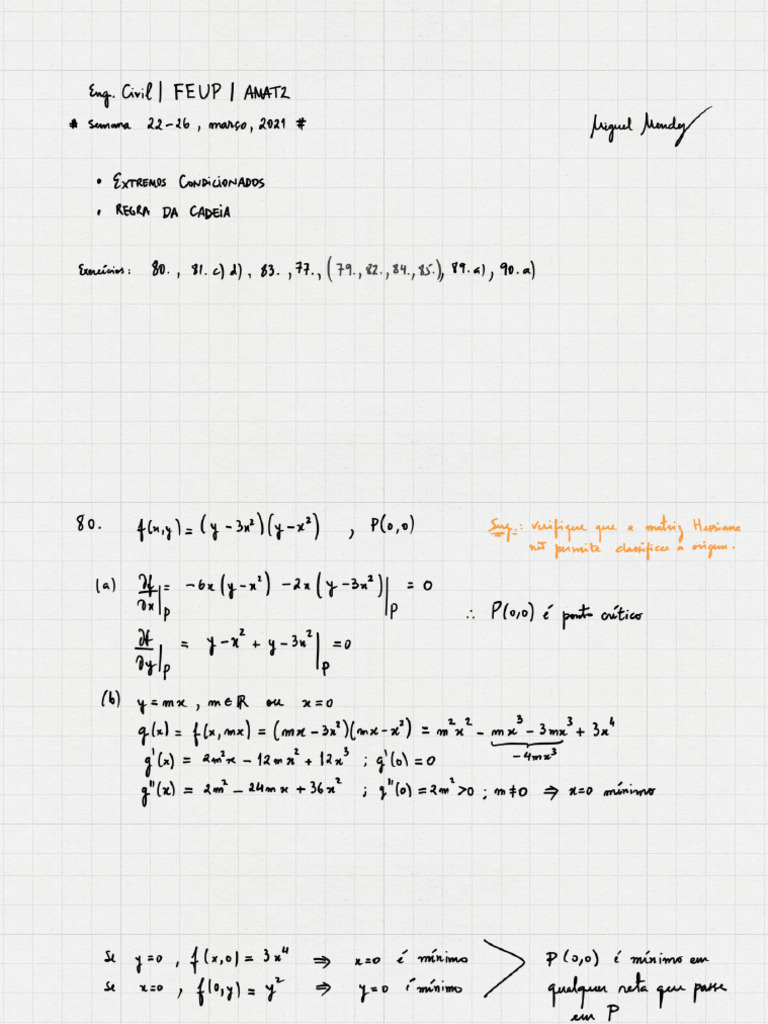 Eng. Civil | FEUP | ANAT2
# Semana 22-26, março, 2021 #
Miguel Mendes
• EXTREMOS CONDICIONADOS
• REGRA DA CADEIA
Exercícios: 80., 81. c) d), 83., 77., (79., 82., 84., 85.), 89. a), 90. a)
80. f(x,y) = (y - 3x²)(y - x²) , P(0,0)
Sug.: verifique que a matriz Hessiana
não permite classificar a origem.
(a) ∂f/∂x|_P = -6x(y - x²) - 2x(y - 3x²)|_P = 0
∴ P(0,0) é ponto crítico
∂f/∂y|_P = y - x² + y - 3x²|_P = 0
(b) y = mx , m ∈ ℝ ou x = 0
g(x) = f(x, mx) = (mx - 3x²)(mx - x²) = m²x² - mx³ - 3mx³ + 3x⁴
-4mx³
g'(x) = 2m²x - 12mx² + 12x³ ; g'(0) = 0
g''(x) = 2m² - 24mx + 36x² ; g''(0) = 2m² > 0 ; m ≠ 0 ⇒ x=0 mínimo
Se y=0 , f(x,0) = 3x⁴ ⇒ x=0 é mínimo
Se x=0 , f(0,y) = y² ⇒ y=0 é mínimo
P(0,0) é mínimo em
qualquer reta que passe
em P